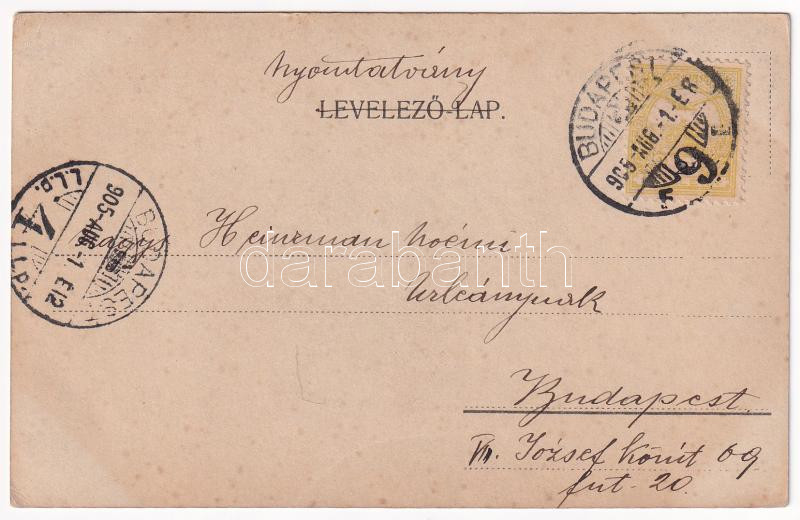 Nyomtatvány
LEVELEZŐ-LAP.
BUDAPEST
905-AUG.-1. E8
F 9
BUDAPEST
905-AUG-1. E12
L.L.P. 4 L.L.P.
Nagys Heinrman Noémi
Urleánynak
darabanth
Budapest
VII. József körút 69
fut-20.